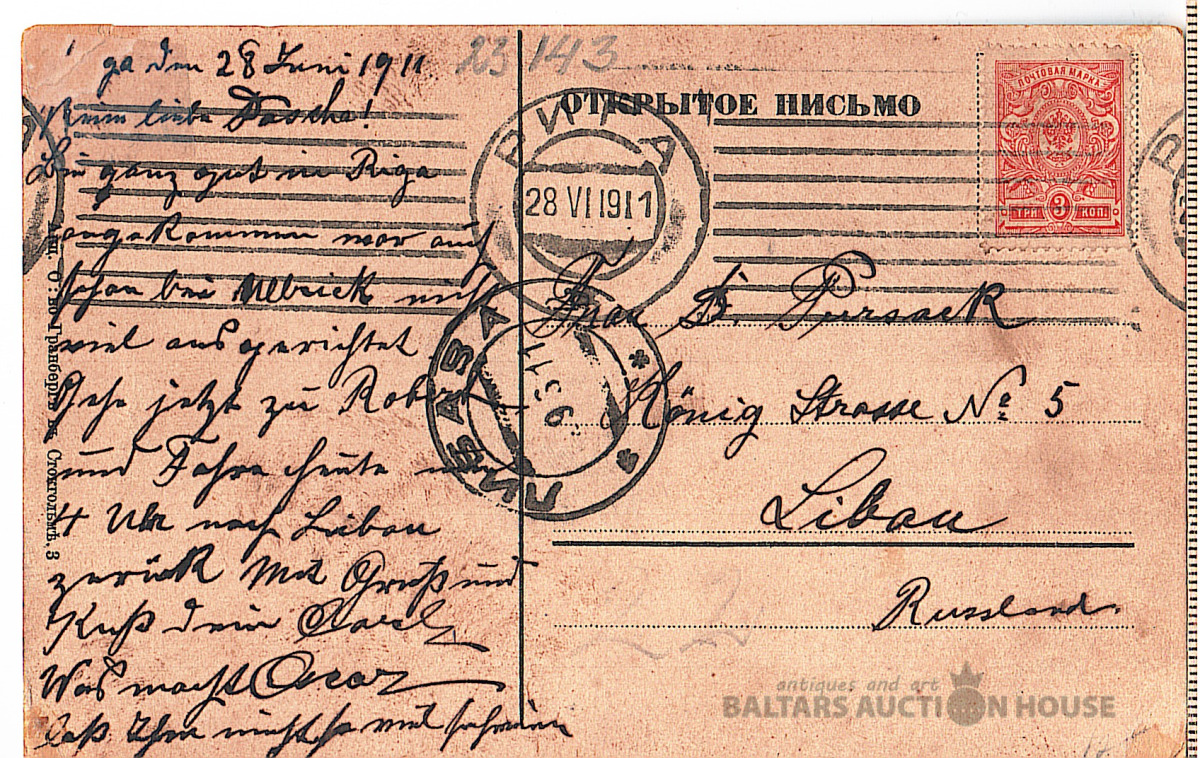 ga den 28 Juni 1911
23 143
Mein liebe Dascha!
Bin ganz gut in Riga
angekommen war auch
schon bei Ulbrick nicht
viel ausgerichtet
Gehe jetzt zu Robert
und Fahre heute um
4 Uhr nach Libau
zurück Mit Gruß und
Kuß dein Carl
Was macht Oscar
laß Ihn nicht so viel schreien
ОТКРЫТОЕ ПИСЬМО
ПОЧТОВАЯ МАРКА
3
ТРИ КОП.
РИГА
28 VI 1911
ЛИБАВА
Frau D. Pursack
König Strasse № 5
Libau
Russland.
Стокгольмъ, 3
antiques and art
BALTARS AUCTION HOUSE